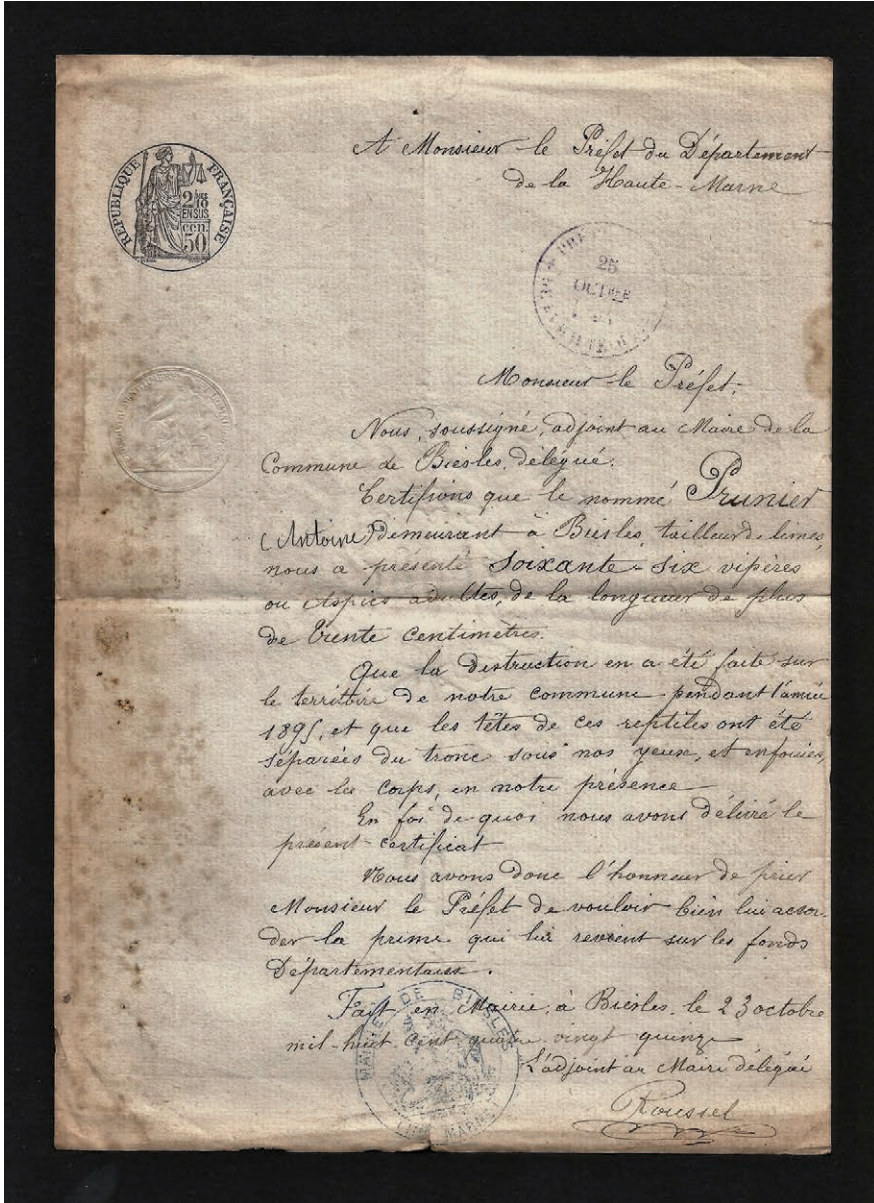 A Monsieur le Préfet du Département
de la Haute-Marne
RÉPUBLIQUE FRANÇAISE
2/10
EN SUS
cen.
50
25
OCT
Monsieur le Préfet,
Nous, soussigné, adjoint au Maire de la
Commune de Biesles, délégué,
Certifions que le nommé Prunier
(Antoine) demeurant à Biesles, tailleur de limes,
nous a présenté soixante-six vipères
ou Aspics adultes, de la longueur de plus
de trente centimètres.
Que la destruction en a été faite sur
le territoire de notre commune pendant l'année
1895, et que les têtes de ces reptiles ont été
séparées du tronc sous nos yeux, et enfouies,
avec les corps, en notre présence
En foi de quoi nous avons délivré le
présent certificat
Nous avons donc l'honneur de prier
Monsieur le Préfet de vouloir bien lui accor-
der la prime qui lui revient sur les fonds
Départementaux.
Fait en Mairie, à Biesles, le 23 octobre
mil-huit cent quatre vingt quinze
L'adjoint au Maire délégué
Roussel
MAIRIE DE BIESLES
MARNE